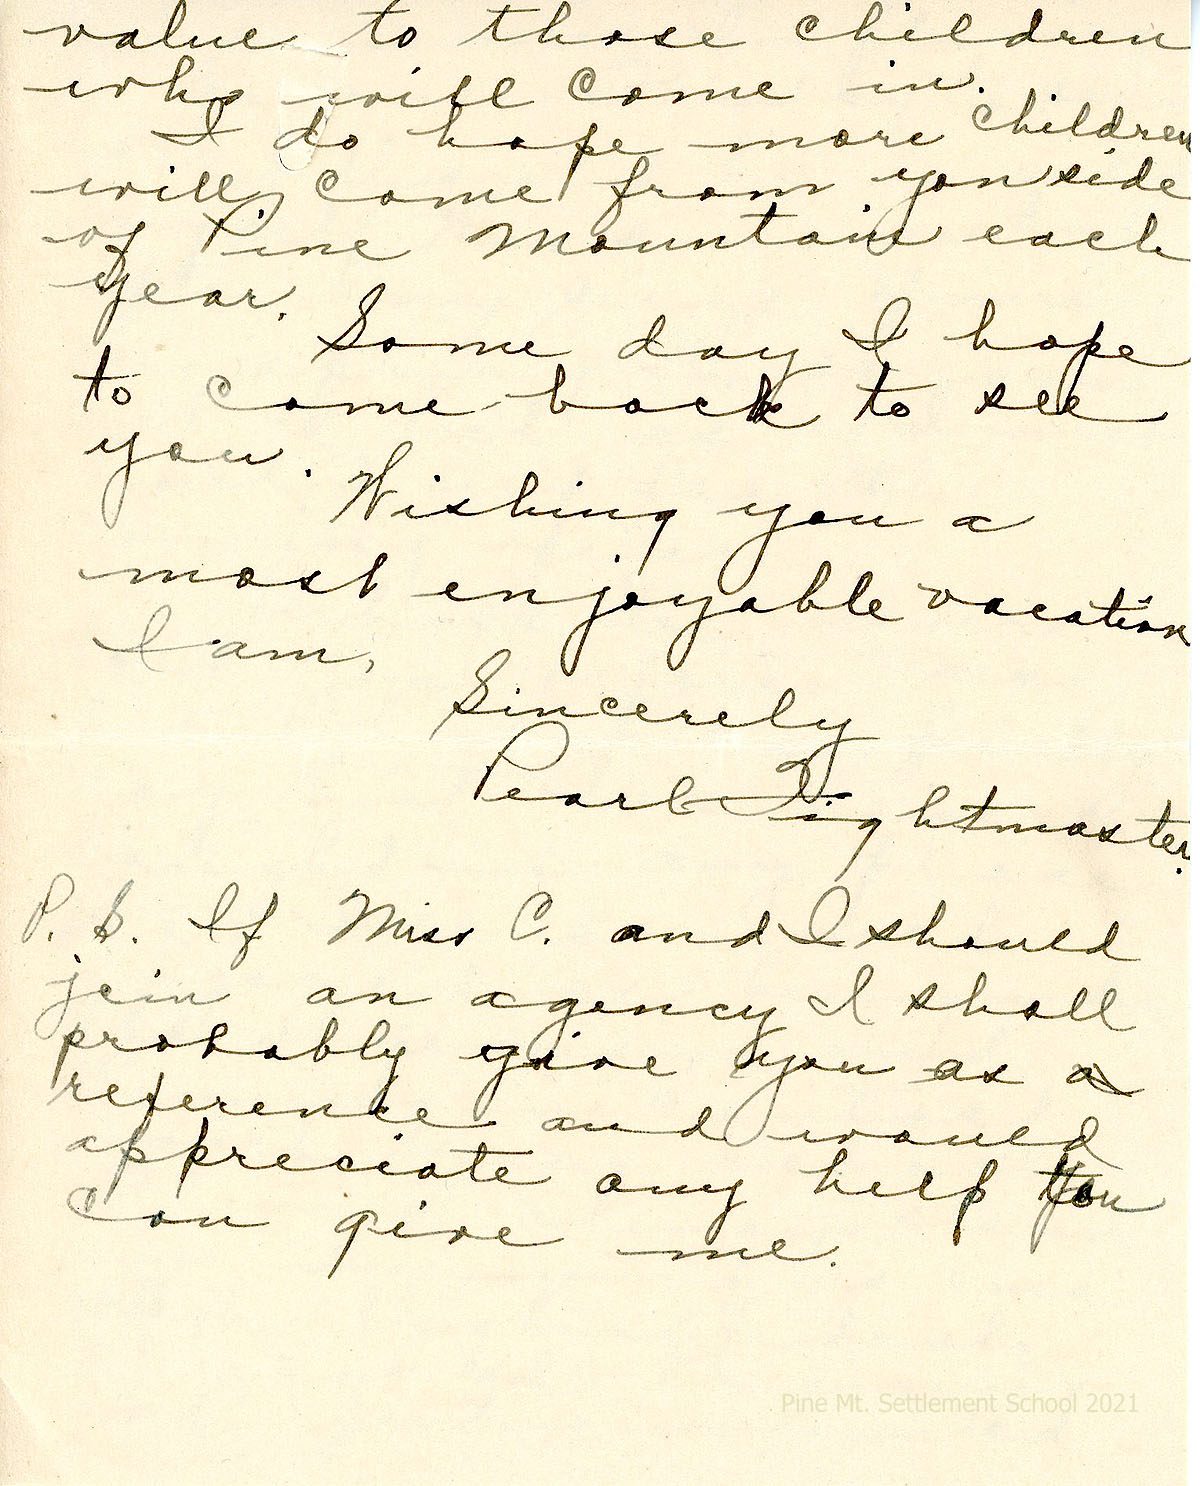 value to those children
who will come in.
I do hope more children
will come from yon side
of Pine Mountain each
year.
Some day I hope
to come back to see
you.
Wishing you a
most enjoyable vacation
I am,
Sincerely
Pearl Tightmaster.
P. S. If Miss C. and I should
join an agency I shall
probably give you as a
reference and would
appreciate any help you
can give me.
Pine Mt. Settlement School 2021